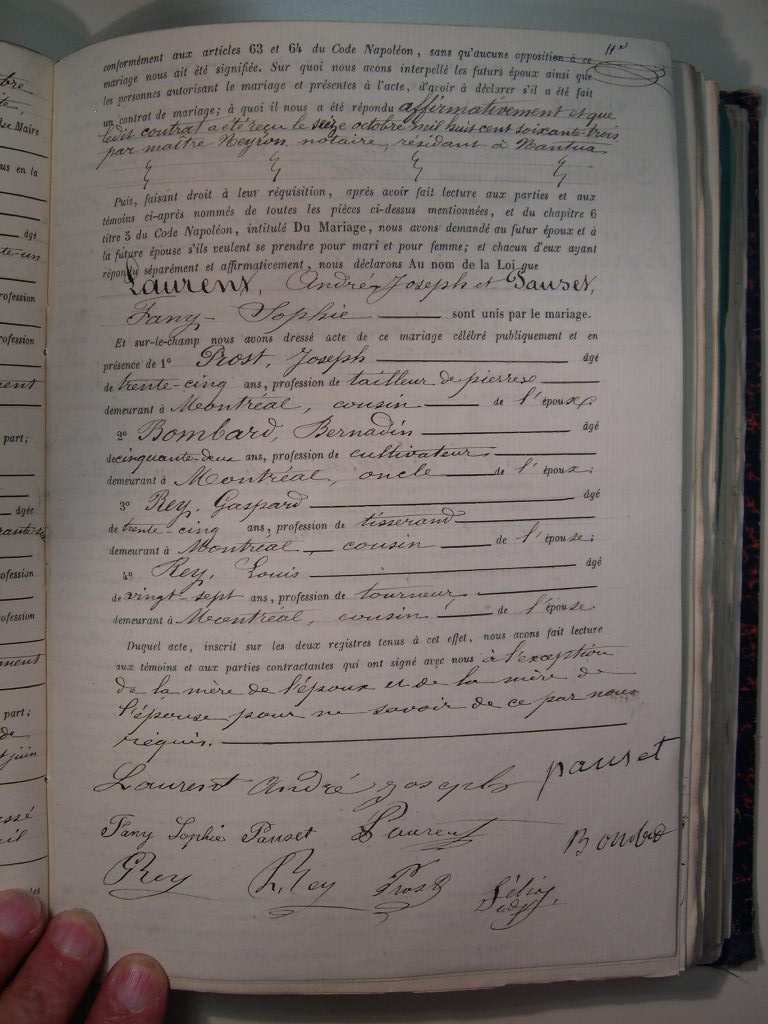 bre
Maire
us en la
âgé
te-un
rofession
rofession
ent
part;
âgée
rante-s
ofession
ofession
ment
part;
de
t juin
essé
eil
conformément aux articles 63 et 64 du Code Napoléon, sans qu'aucune opposition à ce
mariage nous ait été signifiée. Sur quoi nous avons interpellé les futurs époux ainsi que
les personnes autorisant le mariage et présentes à l'acte, d'avoir à déclarer s'il a été fait
un contrat de mariage; à quoi il nous a été répondu affirmativement et que
ledit contrat a été reçu le seize octobre mil huit cent soixante-trois
par maître Neyron, notaire, résidant à Nantua
Puis, faisant droit à leur réquisition, après avoir fait lecture aux parties et aux
témoins ci-après nommés de toutes les pièces ci-dessus mentionnées, et du chapitre 6
titre 5 du Code Napoléon, intitulé Du Mariage, nous avons demandé au futur époux et à
la future épouse s'ils veulent se prendre pour mari et pour femme; et chacun d'eux ayant
répondu séparément et affirmativement, nous déclarons Au nom de la Loi que
Laurent, André-Joseph et Pauset,
Fany-Sophie sont unis par le mariage.
Et sur-le-champ nous avons dressé acte de ce mariage célébré publiquement et en
présence de 1° Prost, Joseph âgé
de trente-cinq ans, profession de tailleur de pierres
demeurant à Montréal, cousin de l'épouse
2° Bombard, Bernadin âgé
de cinquante-deux ans, profession de cultivateur
demeurant à Montréal, oncle de l'époux;
3° Rey, Gaspard âgé
de trente-cinq ans, profession de tisserand
demeurant à Montréal, cousin de l'épouse;
4° Rey, Louis âgé
de vingt-sept ans, profession de tourneur,
demeurant à Montréal, cousin de l'épouse
Duquel acte, inscrit sur les deux registres tenus à cet effet, nous avons fait lecture
aux témoins et aux parties contractantes qui ont signé avec nous à l'exception
de la mère de l'époux et de la mère de
l'épouse pour ne savoir de ce par nous
réquis.
Laurent André Joseph pauset
Fany Sophie Pauset Laurent Bombard
Rey L. Rey Prost